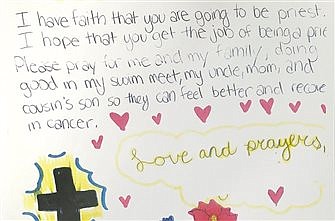 I have faith that you are going to be priest.
I hope that you get the job of being a pric
Please pray for me and my family, doing
good in my swim meet, my uncle, mom, and
cousin's son so they can feel better and recove
in cancer.
Love and prayers,